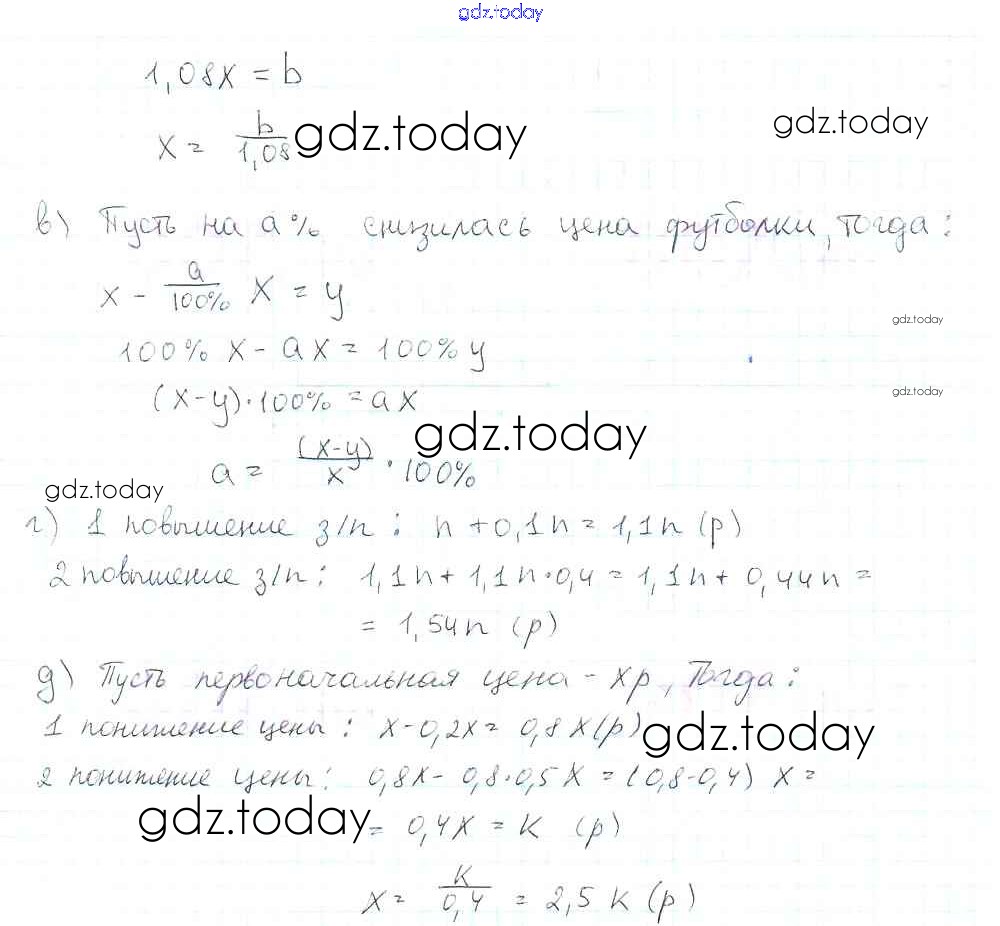 gdz.today
1,08x = b
x = b/1,08 gdz.today
gdz.today
в) Пусть на a% снизилась цена футболки, тогда:
x - a/100% x = y
gdz.today
100% x - ax = 100% y
(x-y)·100% = ax
gdz.today
a = (x-y)/x · 100%
gdz.today
gdz.today
г) 1 повышение з/п : n + 0,1n = 1,1n (р)
2 повышение з/п : 1,1n + 1,1n·0,4 = 1,1n + 0,44n =
= 1,54n (р)
д) Пусть первоначальная цена - xр, Тогда :
1 понижение цены : x - 0,2x = 0,8x (р)
gdz.today
2 понижение цены : 0,8x - 0,8·0,5x = (0,8-0,4) x =
gdz.today
= 0,4x = K (р)
x = K/0,4 = 2,5 K (р)